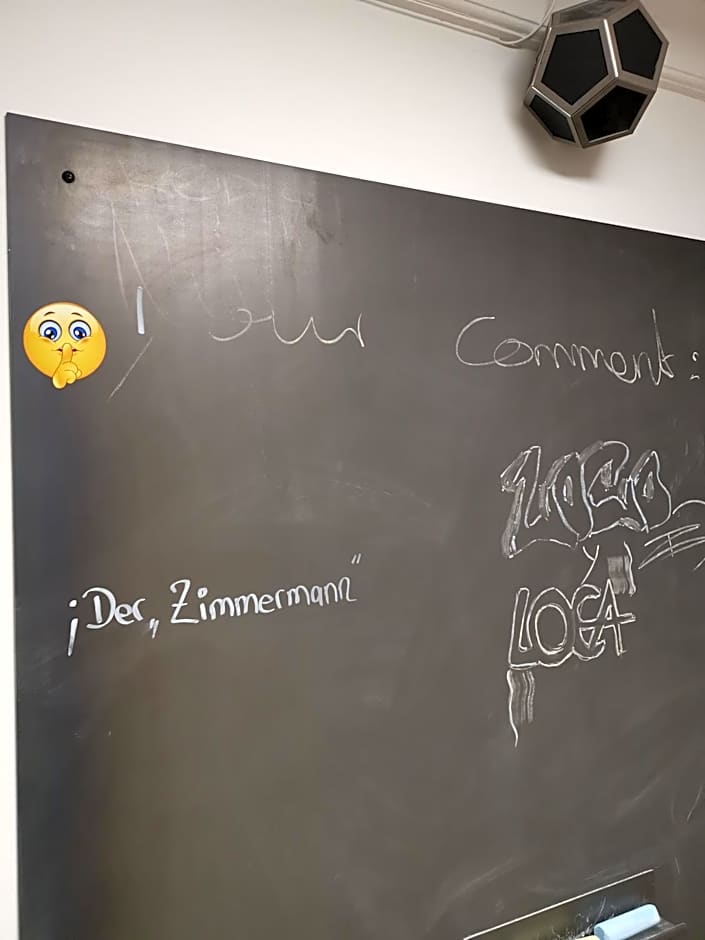 Your Comment:
LOCO
Y
LOCA
¡Der „Zimmermann"